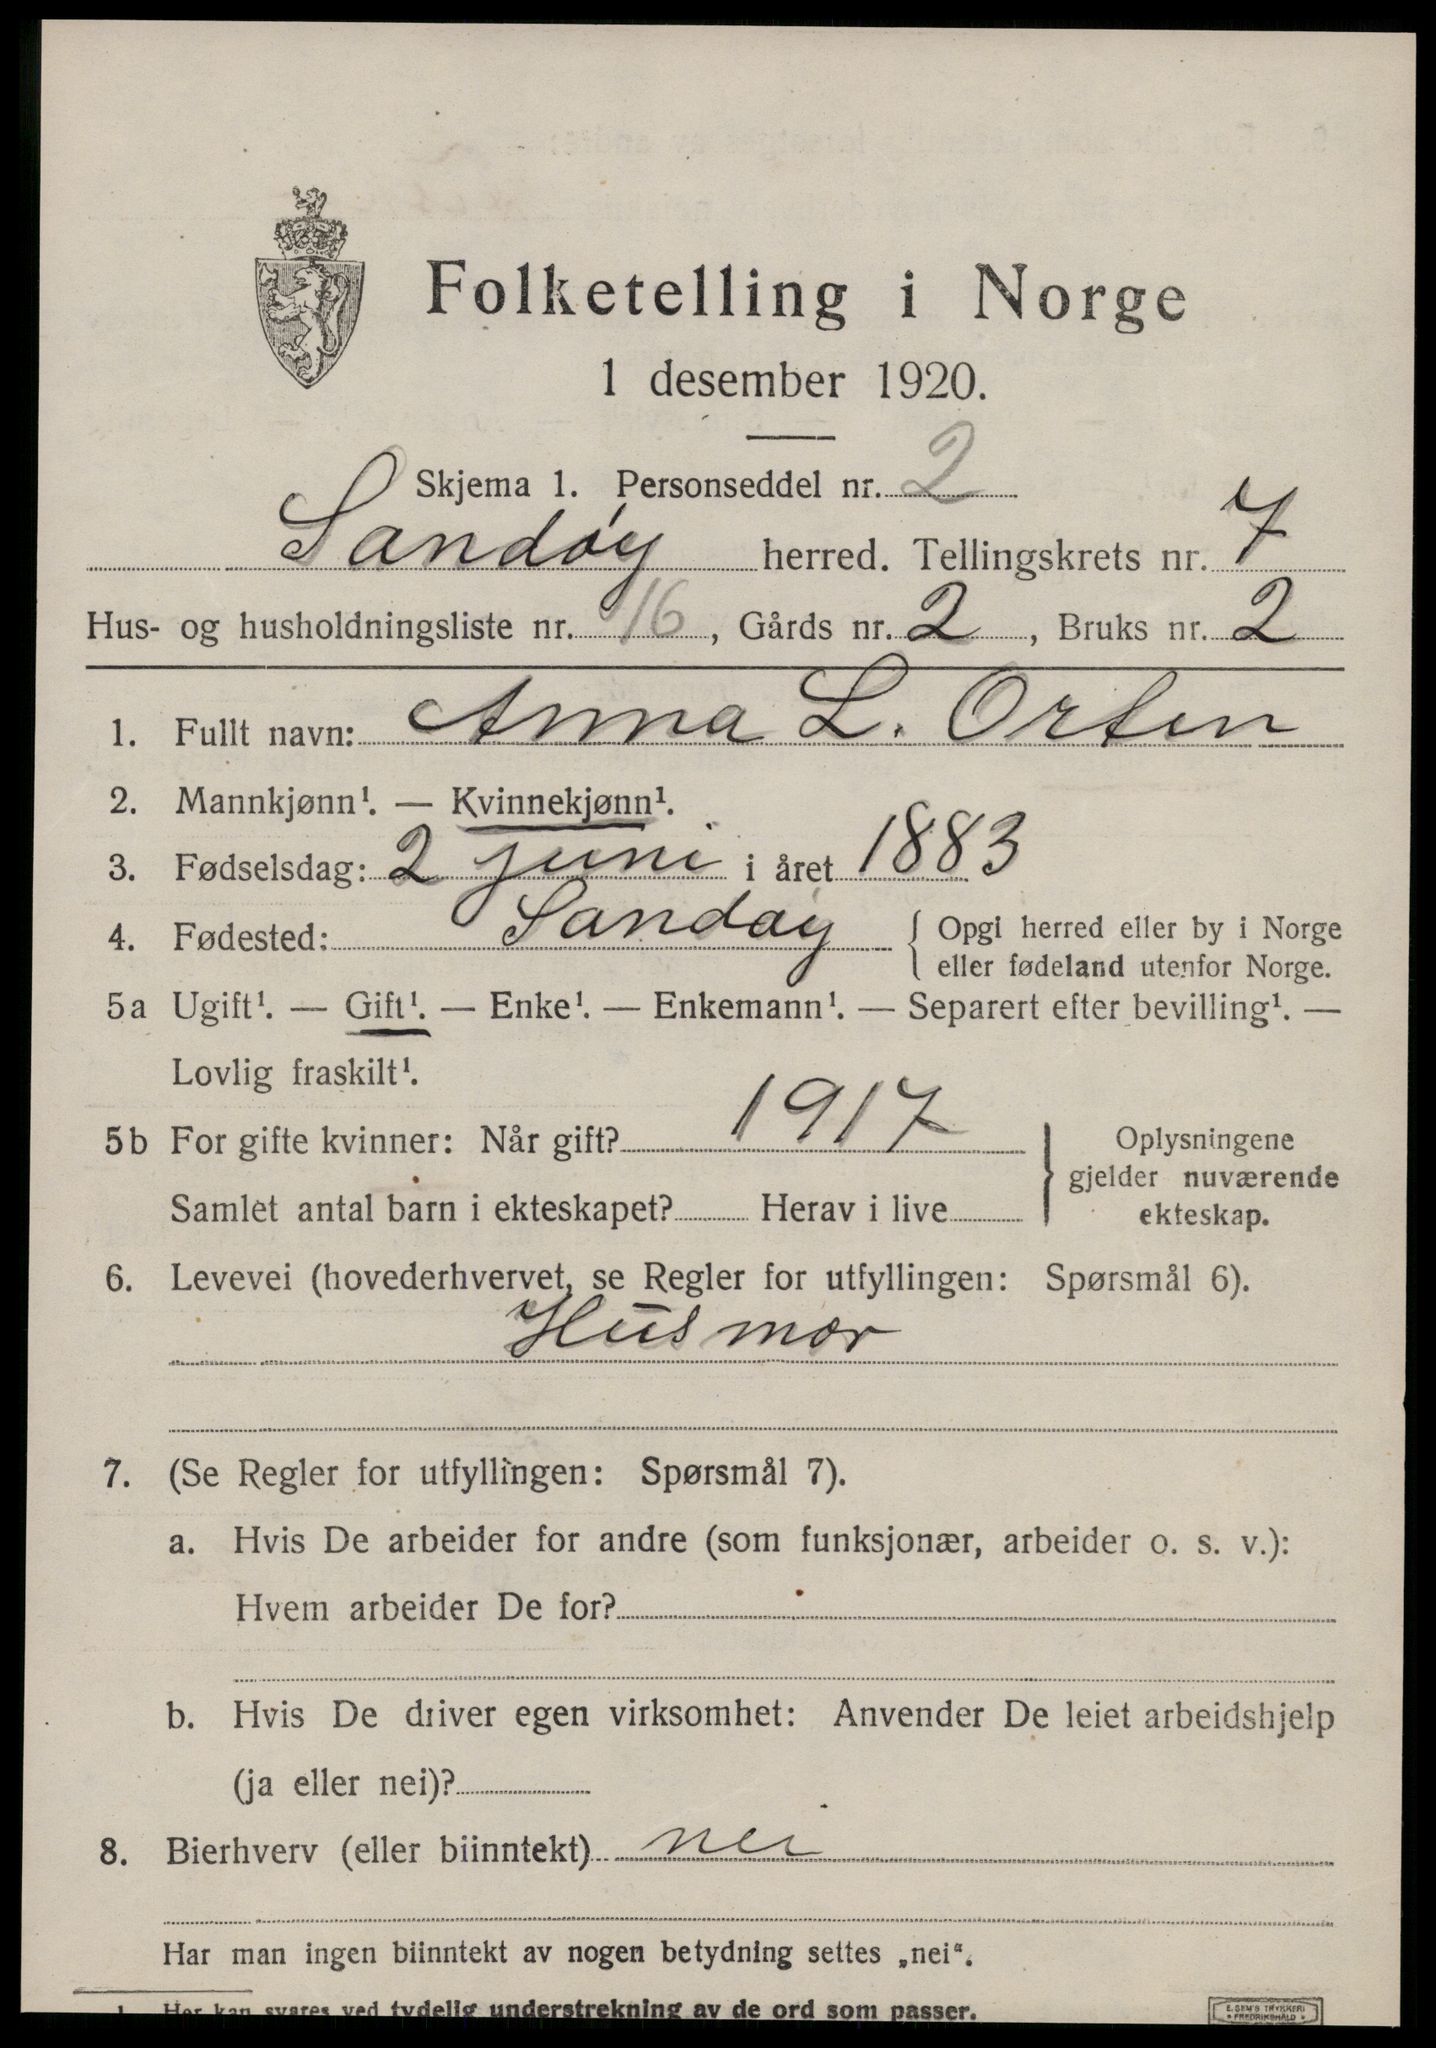 Folketelling i Norge
1 desember 1920.
Skjema 1. Personseddel nr. 2
Sandøy herred. Tellingskrets nr. 7
Hus- og husholdningsliste nr. 16, Gårds nr. 2, Bruks nr. 2
1. Fullt navn: Anna L. Orten
2. Mannkjønn¹. — Kvinnekjønn¹.
3. Fødselsdag: 2 juni i året 1883
4. Fødested: Sandøy { Opgi herred eller by i Norge
eller fødeland utenfor Norge.
5a Ugift¹. — Gift¹. — Enke¹. — Enkemann¹. — Separert efter bevilling¹. —
Lovlig fraskilt¹.
5b For gifte kvinner: Når gift? 1917
Samlet antal barn i ekteskapet? Herav i live
Oplysningene
gjelder nuværende
ekteskap.
6. Levevei (hovederhvervet, se Regler for utfyllingen: Spørsmål 6).
Husmor
7. (Se Regler for utfyllingen: Spørsmål 7).
a. Hvis De arbeider for andre (som funksjonær, arbeider o. s. v.):
Hvem arbeider De for?
b. Hvis De driver egen virksomhet: Anvender De leiet arbeidshjelp
(ja eller nei)?
8. Bierhverv (eller biinntekt) nei
Har man ingen biinntekt av nogen betydning settes „nei“.
1 Her kan svares ved tydelig understrekning av de ord som passer.
E. SEM'S TRYKKERI
FREDRIKSHALD